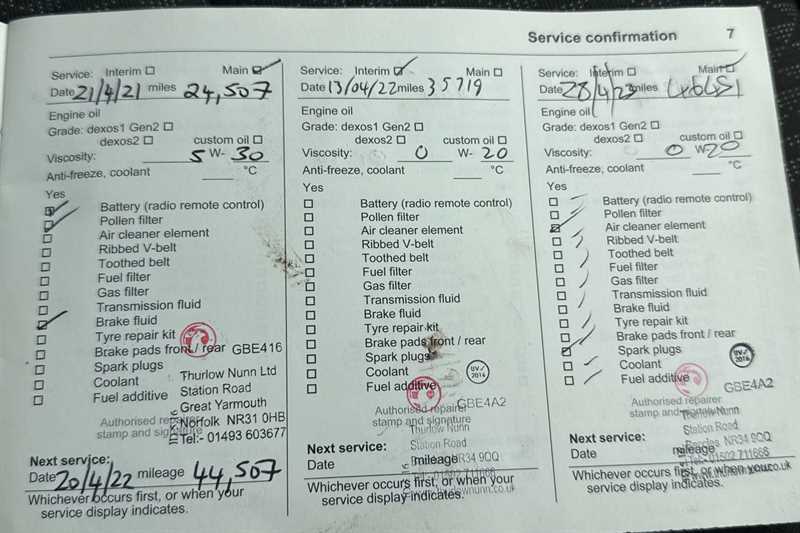 Service confirmation 7
Service: Interim Main
Date 21/4/21 miles 24,507
Engine oil
Grade: dexos1 Gen2
dexos2 custom oil
Viscosity: 5 W- 30
Anti-freeze, coolant °C
Yes
Battery (radio remote control)
Pollen filter
Air cleaner element
Ribbed V-belt
Toothed belt
Fuel filter
Gas filter
Transmission fluid
Brake fluid
Tyre repair kit
Brake pads front / rear GBE416
Spark plugs
Coolant
Fuel additive
Thurlow Nunn Ltd
Station Road
Great Yarmouth
Norfolk NR31 0HB
Tel:- 01493 603677
Authorised repairer
stamp and signature
Next service:
Date 20/4/22 mileage 44,507
Whichever occurs first, or when your
service display indicates.
Service: Interim Main
Date 13/04/22 miles 35719
Engine oil
Grade: dexos1 Gen2
dexos2 custom oil
Viscosity: 0 W- 20
Anti-freeze, coolant °C
Yes
Battery (radio remote control)
Pollen filter
Air cleaner element
Ribbed V-belt
Toothed belt
Fuel filter
Gas filter
Transmission fluid
Brake fluid
Tyre repair kit
Brake pads front / rear
Spark plugs
Coolant
Fuel additive
GBE4A2
Authorised repairer
stamp and signature
Thurlow Nunn
Station Road
NR34 9QQ
Next service:
Date mileage
Whichever occurs first, or when your
service display indicates.
Service: Interim Main
Date 28/4/23 miles
Engine oil
Grade: dexos1 Gen2
dexos2 custom oil
Viscosity: 0 W 20
Anti-freeze, coolant °C
Yes
Battery (radio remote control)
Pollen filter
Air cleaner element
Ribbed V-belt
Toothed belt
Fuel filter
Gas filter
Transmission fluid
Brake fluid
Tyre repair kit
Brake pads front / rear
Spark plugs
Coolant
Fuel additive
GBE4A2
Authorised repairer
stamp and signature
Thurlow Nunn
Station Road
Beccles NR34 9QQ
Next service:
Date mileage
Whichever occurs first, or when your
service display indicates.